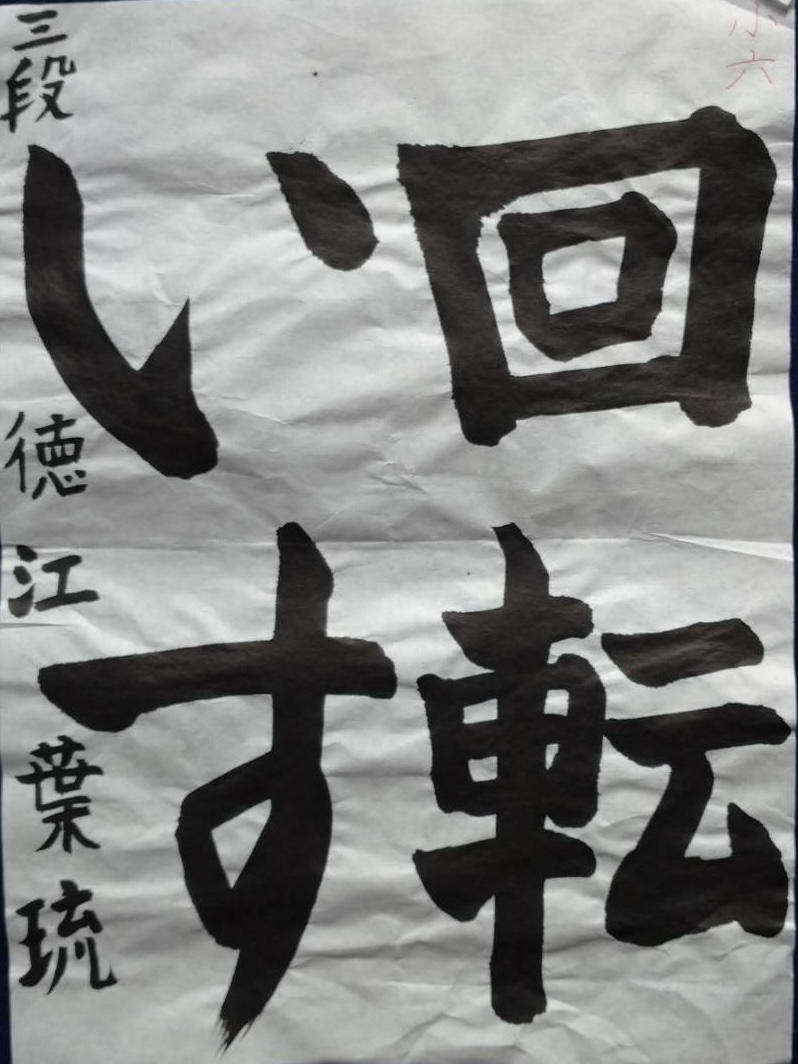 小六
回転
いす
三段 徳江葉琉